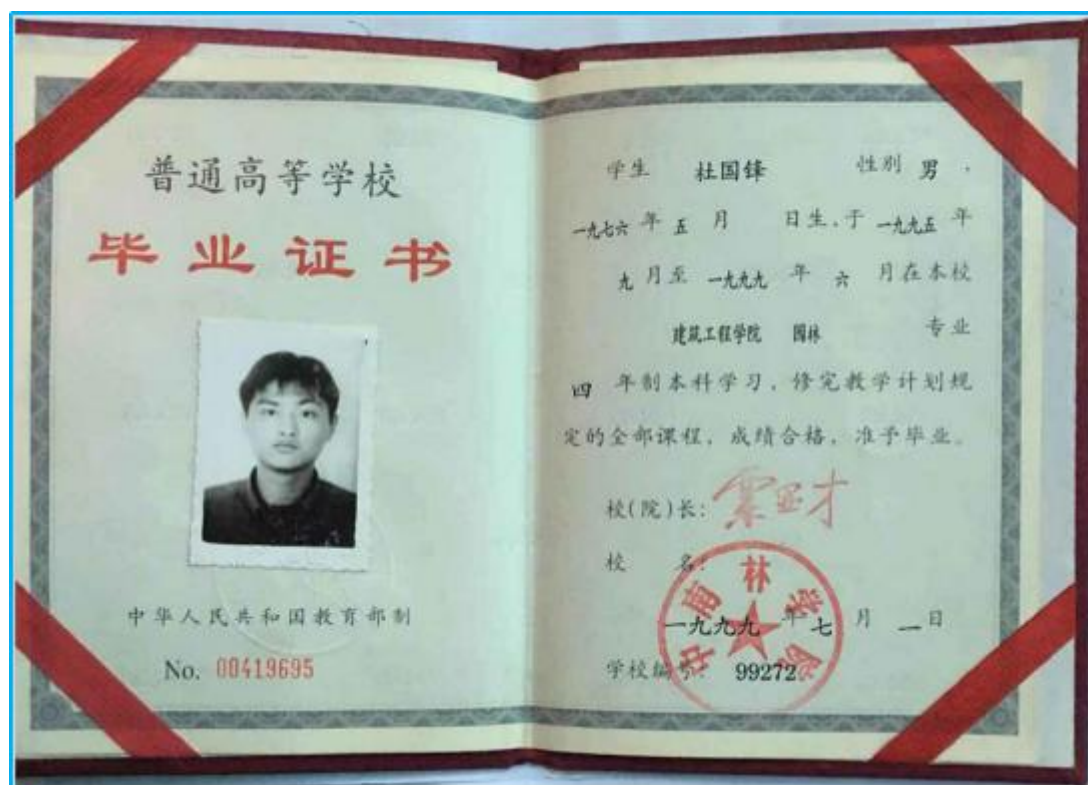 普通高等学校
毕业证书
中华人民共和国教育部制
No. 00419695
学生 杜国锋 性别 男,
一九七六 年 五 月 日生,于 一九九五 年
九 月至 一九九九 年 六 月在本校
建筑工程学院 园林 专业
四 年制本科学习,修完教学计划规
定的全部课程,成绩合格,准予毕业。
校(院)长:
校 名:
中南林学院
一九九九 年 七 月 一 日
学校编号: 99272